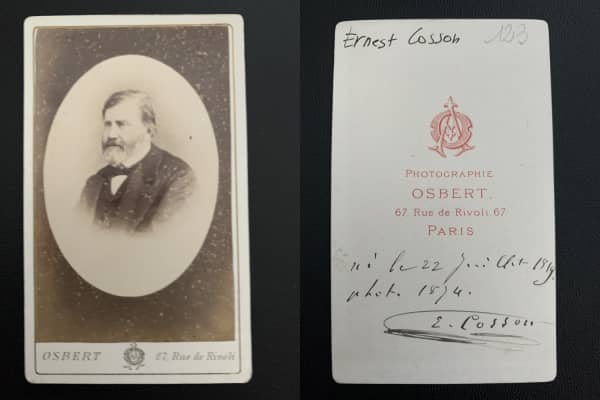 OSBERT
67, Rue de Rivoli
Ernest Cosson
123
PHOTOGRAPHIE
OSBERT.
67. Rue de Rivoli. 67
PARIS
né le 22 Juillet 1819.
phot. 1874.
E. Cosson